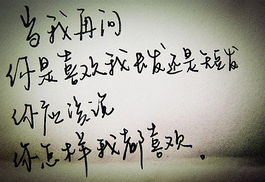 当我再问
你是喜欢我长发还是短发
你应该说
你怎样我都喜欢。